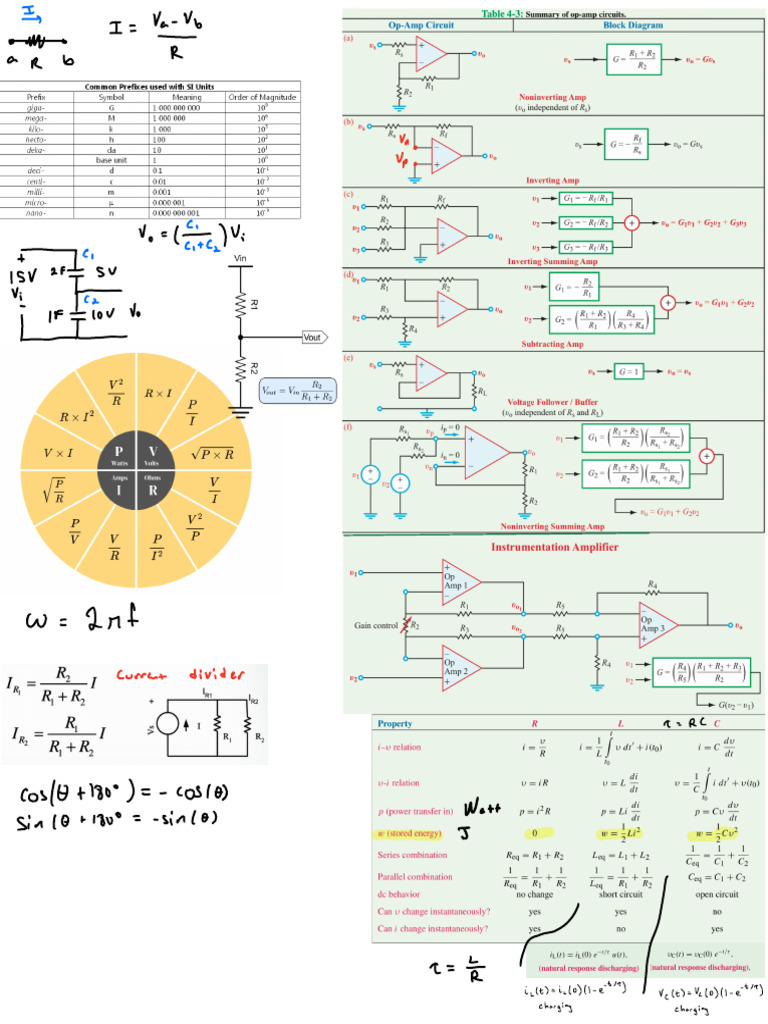 I
a R b
I = (Va - Vb) / R
Common Prefixes used with SI Units
Prefix Symbol Meaning Order of Magnitude
giga- G 1 000 000 000 10^9
mega- M 1 000 000 10^6
kilo- k 1 000 10^3
hecto- h 100 10^2
deka- da 10 10^1
base unit 1 10^0
deci- d 0.1 10^-1
centi- c 0.01 10^-2
milli- m 0.001 10^-3
micro- μ 0.000 001 10^-6
nano- n 0.000 000 001 10^-9
Vo = (C1 / (C1+C2)) Vi
+ 15V Vi -
C1 2F 5V
C2 1F 10V Vo
Vin
R1
Vout
R2
Vout = Vin R2 / (R1 + R2)
P Watts
V Volts
Amps I
Ohms R
V²/R
R × I
P/I
√(P × R)
V/I
V²/P
P/I²
V/R
P/V
√(P/R)
V × I
R × I²
ω = 2πf
I_R1 = R2 / (R1 + R2) I
I_R2 = R1 / (R1 + R2) I
Current divider
+ Vs - I I_R1 I_R2 R1 R2
cos(θ + 180° ) = - cos(θ)
sin (θ + 180° = -sin (θ)
Table 4-3: Summary of op-amp circuits.
Op-Amp Circuit Block Diagram
(a)
υs Rs + - υo R1 R2
υs G = (R1 + R2) / R2 υo = Gυs
Noninverting Amp
(υo independent of Rs)
(b)
υs Rs Rf Vn Vp - + υo
υs G = - Rf / Rs υo = Gυs
Inverting Amp
(c)
υ1 R1 Rf
υ2 R2
υ3 R3 - + υo
υ1 G1 = - Rf/R1
υ2 G2 = - Rf/R2 + υo = G1υ1 + G2υ2 + G3υ3
υ3 G3 = - Rf/R3
Inverting Summing Amp
(d)
υ1 R1 R2
υ2 R3 R4 - + υo
υ1 G1 = - R2 / R1
υ2 G2 = ((R1 + R2) / R1) (R4 / (R3 + R4)) + υo = G1υ1 + G2υ2
Subtracting Amp
(e)
υs Rs + - υo RL
υs G = 1 υo = υs
Voltage Follower / Buffer
(υo independent of Rs and RL)
(f)
Rs1 υp ip = 0 Rs2 υn in = 0 + - υo R1 R2
υ1 + - υ2 + -
υ1 G1 = ((R1 + R2) / R2) (Rs2 / (Rs1 + Rs2))
υ2 G2 = ((R1 + R2) / R2) (Rs1 / (Rs1 + Rs2)) +
υo = G1υ1 + G2υ2
Noninverting Summing Amp
Instrumentation Amplifier
υ1 + Op Amp 1 -
Gain control R2 R1 υo1 R5 R4
R3 υo2 R5 - Op Amp 3 + υo
υ2 - Op Amp 2 + R4
υ1 υ2 G = (R4 / R5) ((R1 + R2 + R3) / R2)
G(υ2 − υ1)
τ = RC
Property R L C
i–υ relation i = υ/R i = 1/L ∫ t0 t υ dt′ + i(t0) i = C dυ/dt
υ-i relation υ = iR υ = L di/dt υ = 1/C ∫ t0 t i dt′ + υ(t0)
p (power transfer in) Watt p = i²R p = Li di/dt p = Cυ dυ/dt
w (stored energy) J 0 w = 1/2 Li² w = 1/2 Cυ²
Series combination Req = R1 + R2 Leq = L1 + L2 1/Ceq = 1/C1 + 1/C2
Parallel combination 1/Req = 1/R1 + 1/R2 1/Leq = 1/R1 + 1/R2 Ceq = C1 + C2
dc behavior no change short circuit open circuit
Can υ change instantaneously? yes yes no
Can i change instantaneously? yes no yes
τ = L/R
iL(t) = iL(0) e^−t/τ u(t).
(natural response discharging)
υC(t) = υC(0) e^−t/τ.
(natural response discharging).
iL(t) = iL(0) (1 - e^-t/τ)
charging
Vc(t) = Vc(0) (1 - e^-t/τ)
charging